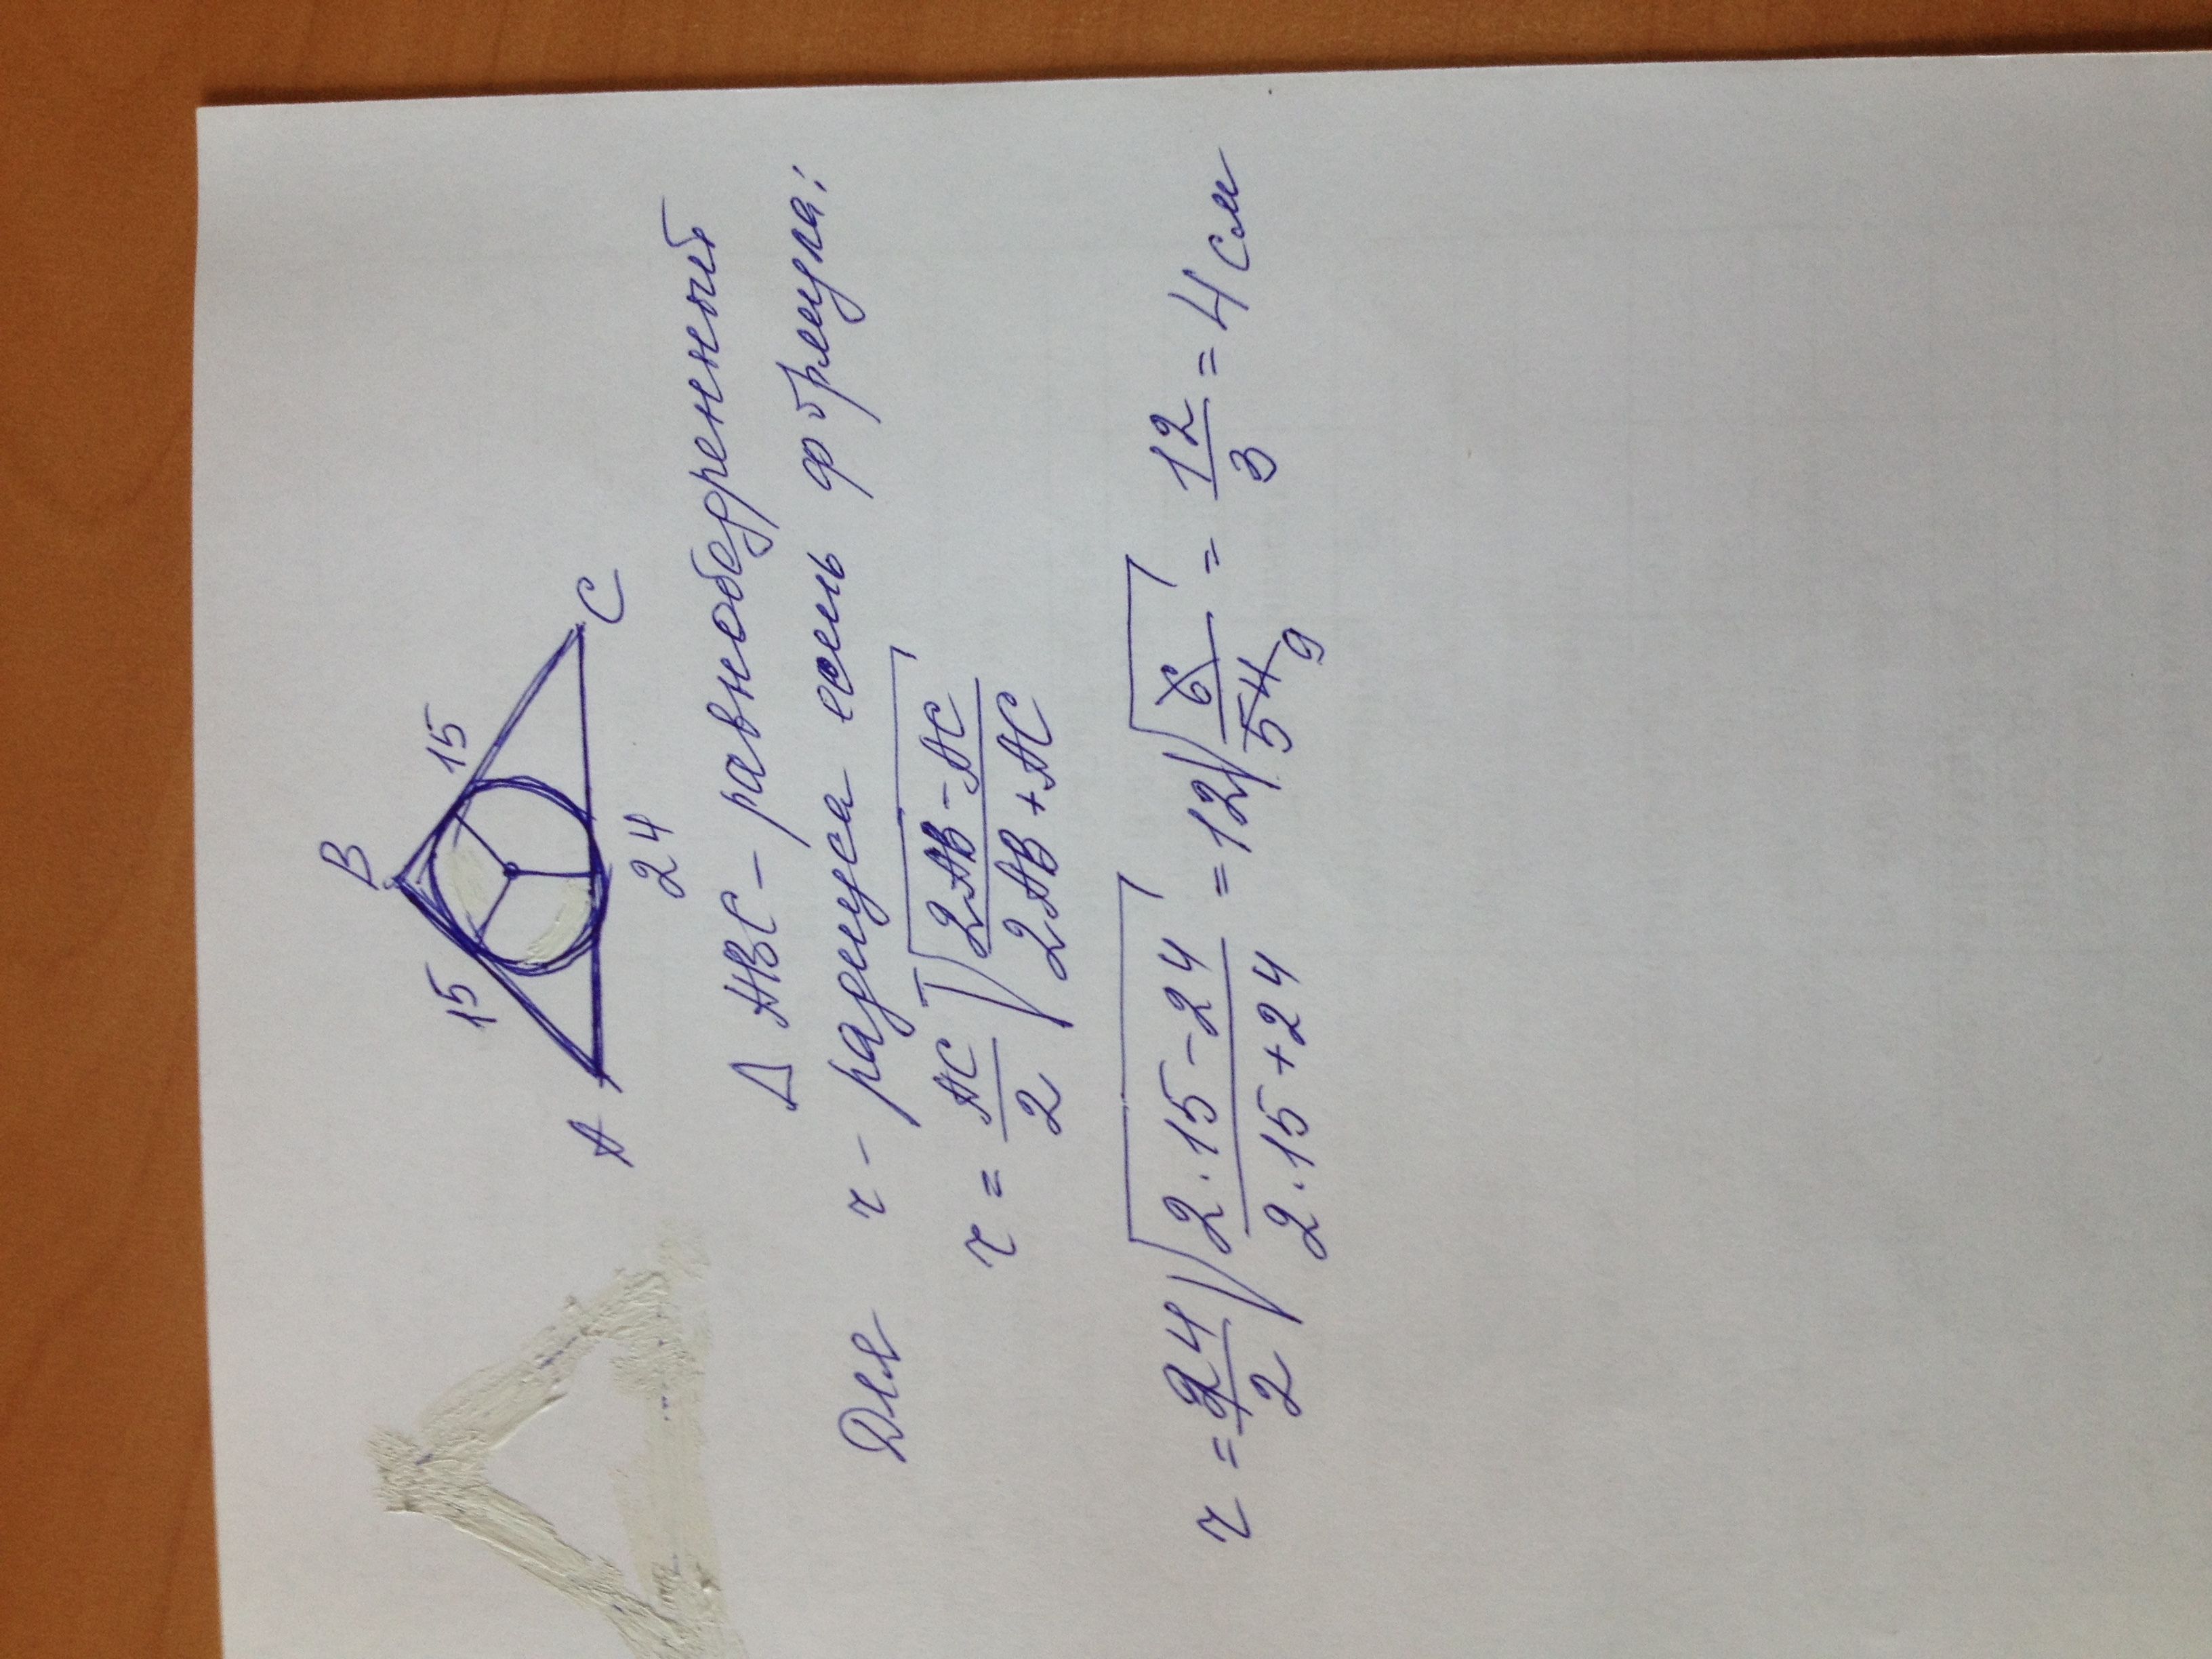 B
15 15
A C
24
Δ ABC - равнобедренный
Для r - радиуса есть формула:
r = AC/2 √((2AB - AC)/(2AB + AC))
r = 24/2 √((2·15 - 24)/(2·15 + 24)) = 12√(6/54 9) = 12/3 = 4 см